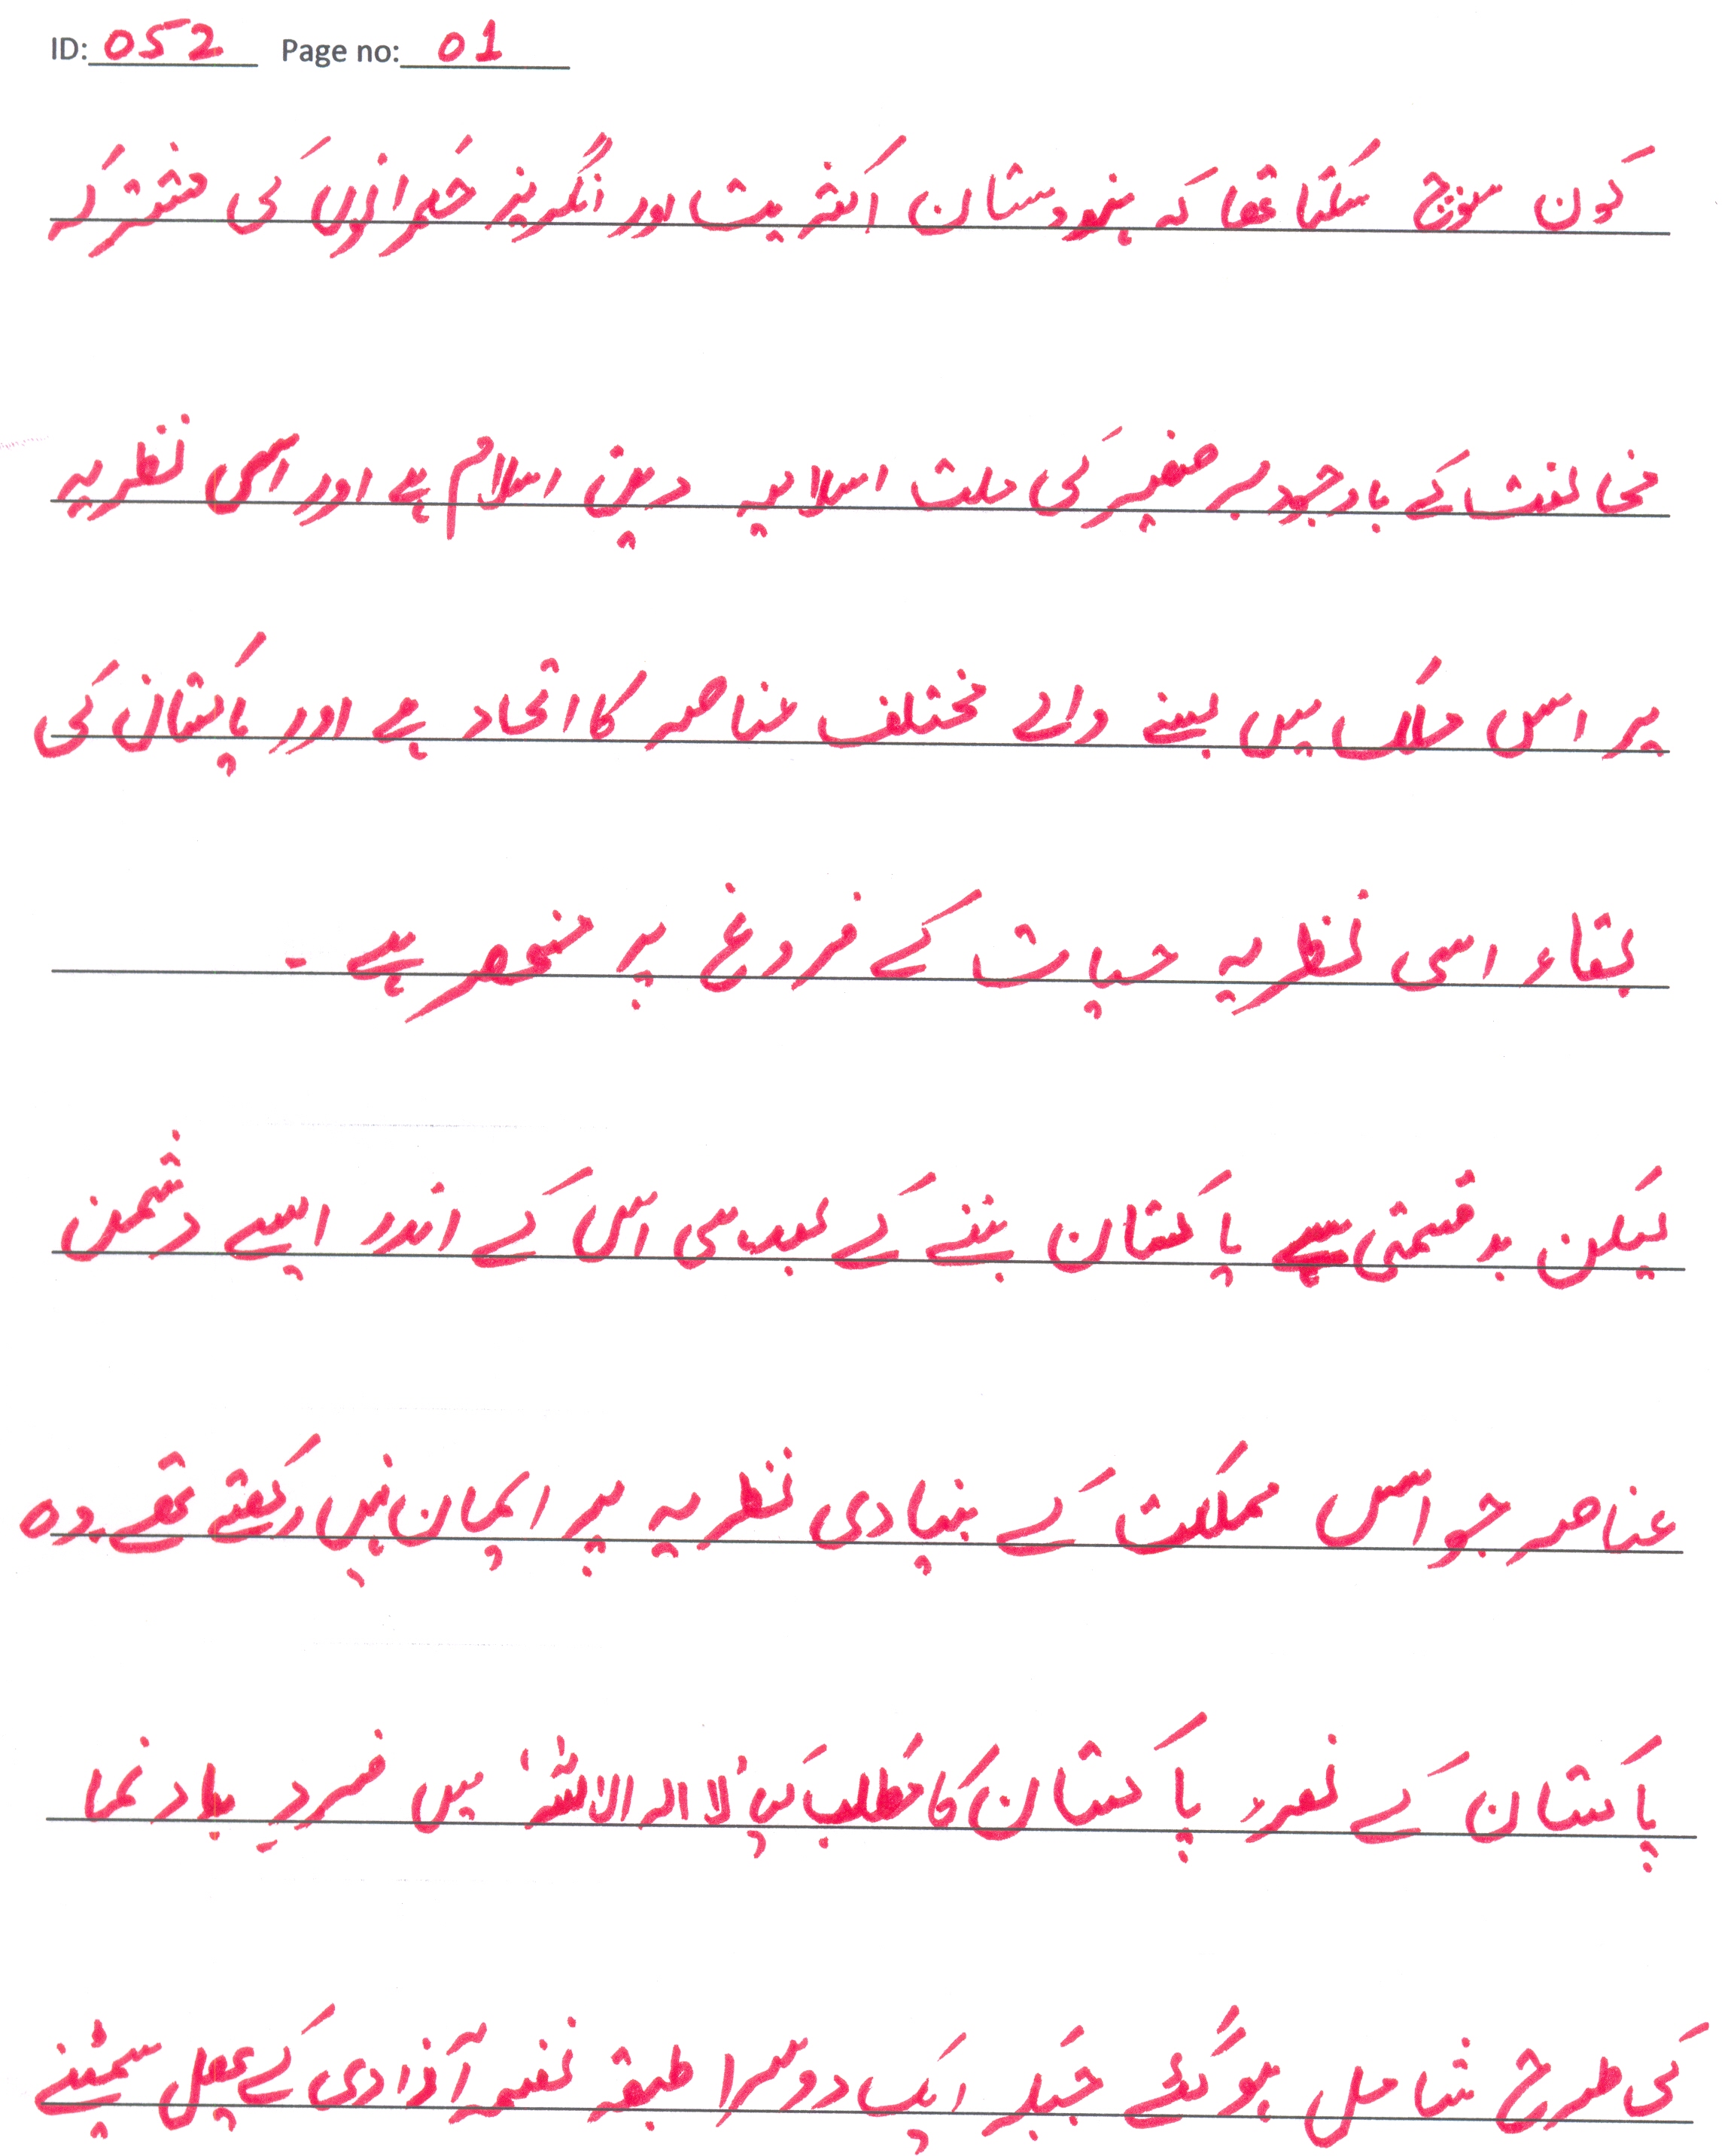 ID: 052 Page no: 01
کون سوچ سکتا تھا کہ ہندوستان اکثریت اور انگریز حکمرانوں کی مشترکہ
مخالفت کے باوجود برصغیر کی ملت اسلامیہ دین اسلام ہے اور اسی نظریہ
پر اس ملک میں بسنے والے مختلف عناصر کا اتحاد ہے اور پاکستان کی
بقاء اسی نظریہ حیات کے فروغ پر منحصر ہے ۔
لیکن بدقسمتی سے پاکستان بننے کے بعد ہی اس کے اندر ایسے دشمن
عناصر جو اس مملکت کے بنیادی نظریہ پر ایمان نہیں رکھتے تھے۔ وہ
پاکستان کے نعرہ پاکستان کا مطلب کیا لا الہ الا اللہ میں فسردِ
کی طرح شامل ہوگئے جبکہ ایک دوسرا طبقہ نغمہ آزادی کے پھل سمیٹنے